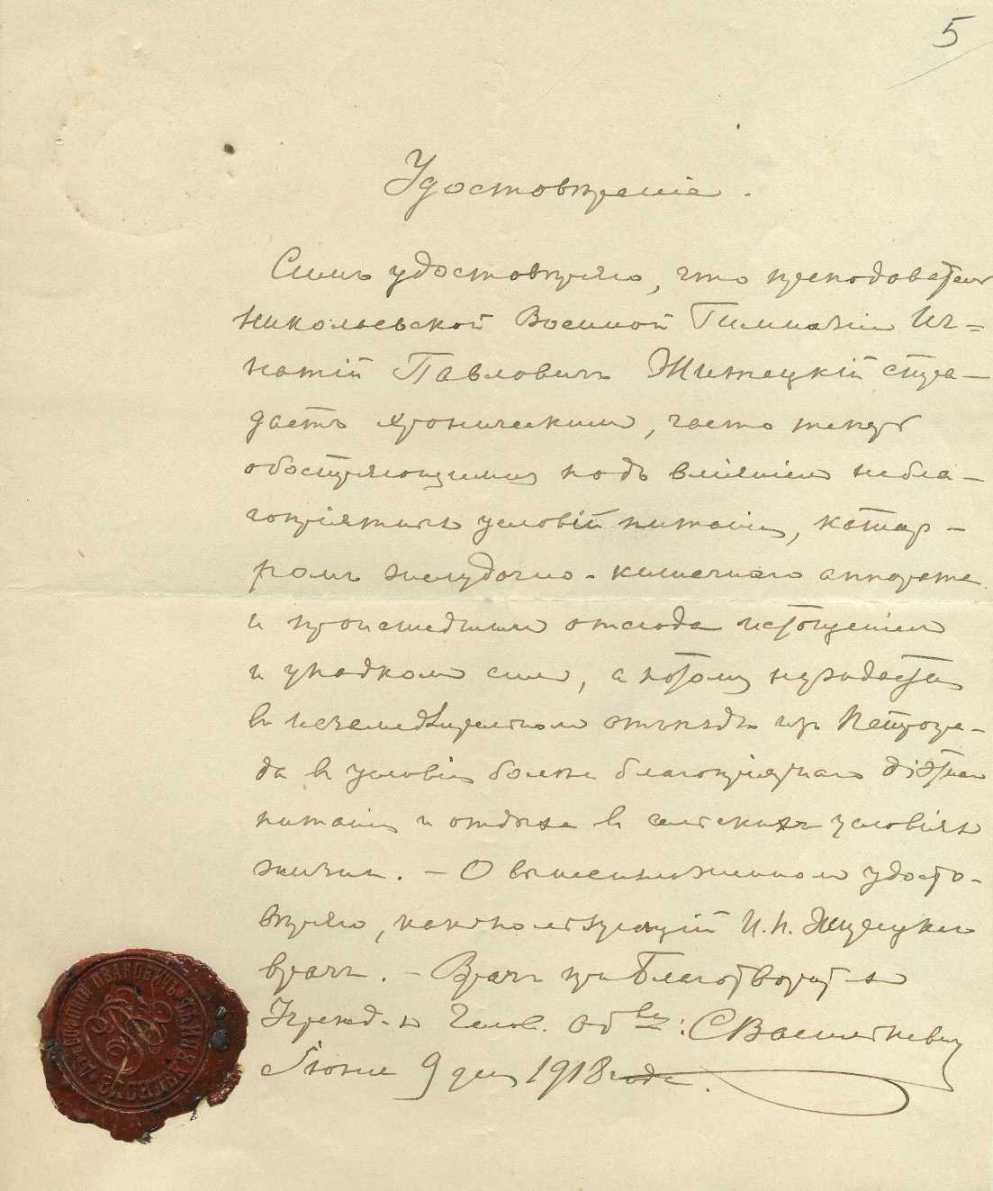 5
Удостовѣреніе.
Симъ удостовѣряю, что преподаватель
Николаевской Военной Гимназіи Иг=
натій Павловичъ Житецкій стра-
даетъ хроническимъ, часто теперь
обостряющимся подъ вліяніемъ небла-
гопріятныхъ условій питанія, катар-
ромъ желудочно-кишечнаго аппарата
и происшедшими отсюда истощеніемъ
и упадкомъ силъ, а потому нуждается
въ отъѣздѣ изъ Петрогра-
да въ условія болѣе благопріятнаго
питанія и отдыха въ сельскихъ условіяхъ
жизни. – О вышеизложенномъ удосто-
вѣряю, какъ пользующій И. П. Житецкаго
врачъ. – Врачъ при Благотворит-
Учрежд. Челов. Об-ва: С Василькевичъ
Іюня 9 дня 1918 года.